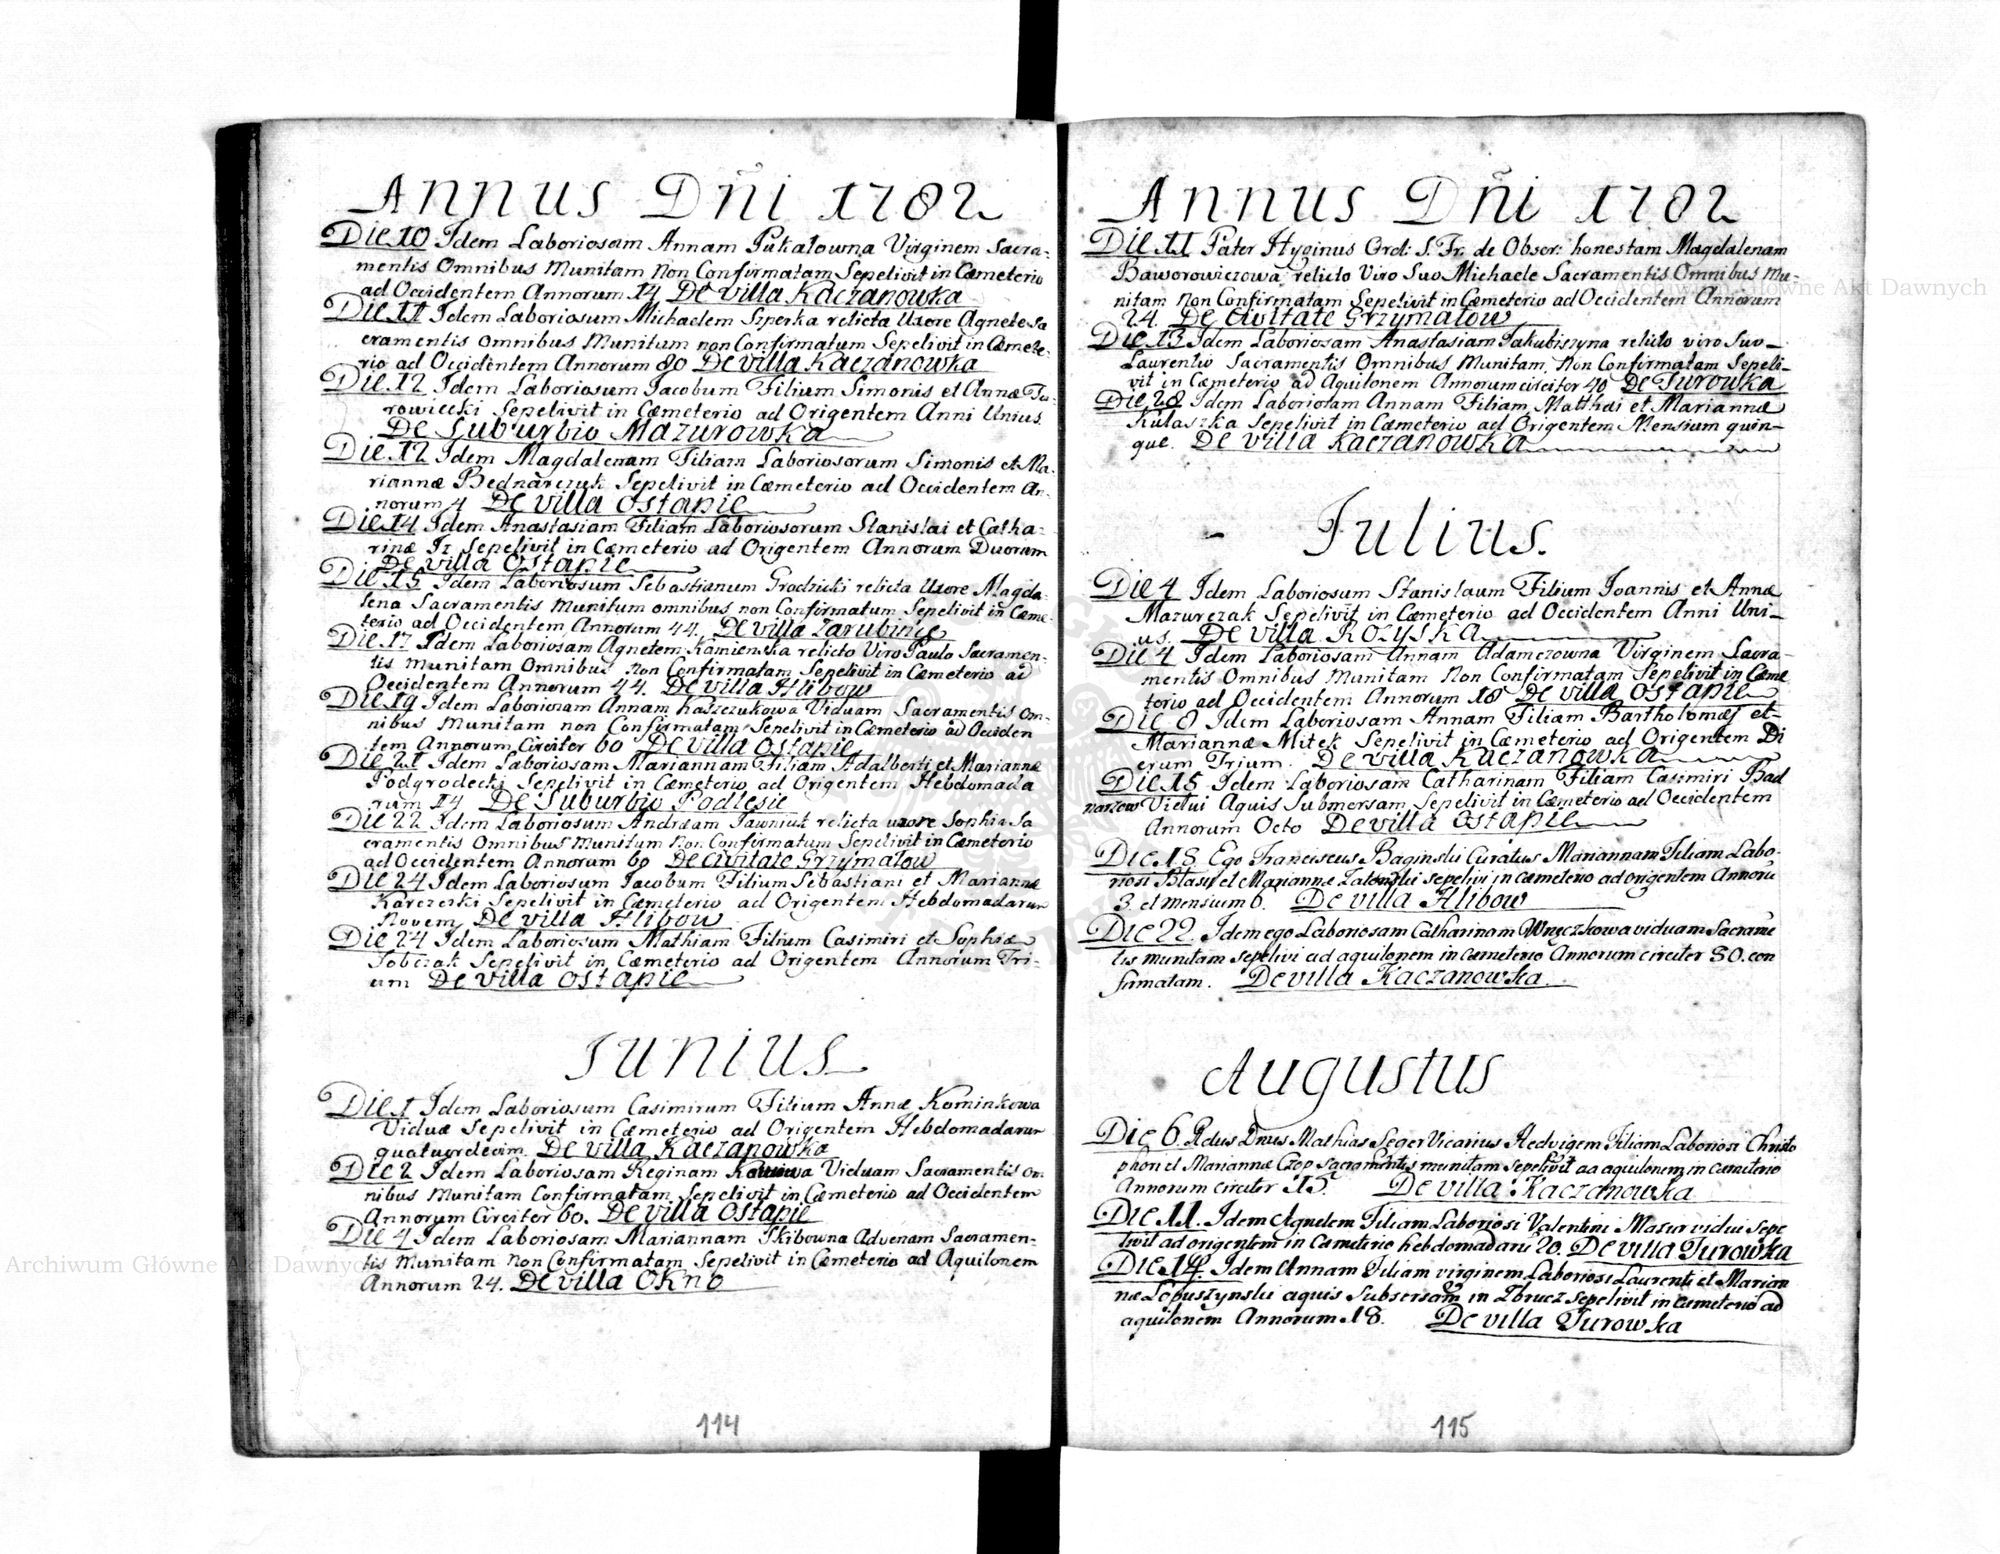 Annus Dñi 1782
Die 10 Idem Laboriosam Annam Pukałowna Virginem Sacra-
mentis Omnibus Munitam Non Confirmatam Sepelivit in Cæmeterio
ad Occidentem Annorum 14 De villa Kaczanowka
Die 11 Idem Laboriosum Michaelem Szperka relicta Uxore Agnete Sa
cramentis Omnibus Munitum non Confirmatum Sepelivit in Cæmete-
rio ad Occidentem Annorum 80 De villa Kaczanowka
Die 12 Idem Laboriosum Jacobum Filium Simonis et Annæ Tu-
rowiecki Sepelivit in Cæmeterio ad Origentem Anni Unius
De Suburbio Mazurowka
Die 12 Idem Magdalenam Filiam Laboriosorum Simonis et Ma-
riannæ Bednarczuk Sepelivit in Cæmeterio ad Occidentem An-
norum 4 De villa Ostapie
Die 14 Idem Anastasiam Filiam Laboriosorum Stanislai et Catha-
rinæ Sepelivit in Cæmeterio ad Origentem Annorum Duorum
De villa Ostapie
Die 15 Idem Laboriosum Sebastianum Grodzicki relicta Uxore Magda-
lena Sacramentis Munitum omnibus non Confirmatum Sepelivit in Cæme-
terio ad Occidentem Annorum 44. De villa Zarubinie
Die 17 Idem Laboriosam Agnetem Kamienska relicto Viro Paulo Sacramen-
tis Munitam Omnibus Non Confirmatam Sepelivit in Cæmeterio ad
Occidentem Annorum 44. De villa Hlibow
Die 19 Idem Laboriosam Annam Kaszczukowa Viduam Sacramentis Om-
nibus Munitam non Confirmatam Sepelivit in Cæmeterio ad Occiden
tem Annorum Circiter 60 De villa Ostapie
Die 21 Idem Laboriosam Mariannam Filiam Adalberti et Mariannæ
Podgrodecki Sepelivit in Cæmeterio ad Origentem Hebdomada
rum 14 De Suburbio Podlesie
Die 22 Idem Laboriosum Andræam Jawniuk relicta uxore Sophia Sa
cramentis Omnibus Munitum Non Confirmatum Sepelivit in Cæmeterio
ad Occidentem Annorum 60 De Civitate Grzymałow
Die 24 Idem Laboriosum Jacobum Filium Sebastiani et Mariannæ
Karczeski Sepelivit in Cæmeterio ad Origentem Hebdomadarum
Novem De villa Hlibow
Die 24 Idem Laboriosum Mathiam Filium Casimiri et Sophiæ
Sobczak Sepelivit in Cæmeterio ad Origentem Annorum Tri-
um De villa Ostapie
Junius
Die 1 Idem Laboriosum Casimirum Filium Annæ Kominkowa
Viduæ Sepelivit in Cæmeterio ad Origentem Hebdomadarum
quatuordecim. De villa Kaczanowka
Die 2 Idem Laboriosam Reginam Viduam Sacramentis Om-
nibus Munitam Confirmatam Sepelivit in Cæmeterio ad Occidentem
Annorum Circiter 60. De villa Ostapie
Die 4 Idem Laboriosam Mariannam Skibowna Advenam Sacramen-
tis Munitam Non Confirmatam Sepelivit in Cæmeterio ad Aquilonem
Annorum 24. De villa Okno
114
Annus Dñi 1782
Die 11 Pater Hyginus Ord: S. Fr. de Obser: honestam Magdalenam
Baworowiczowa relicto Viro Suo Michaele Sacramentis Omnibus Mu-
nitam Non Confirmatam Sepelivit in Cæmeterio ad Occidentem Annorum
24. De Civitate Grzymałow
Die 13 Idem Laboriosam Anastasiam Jakubiszyna relicto viro Suo
Laurentio Sacramentis Omnibus Munitam Non Confirmatam Sepeli-
vit in Cæmeterio ad Aquilonem Annorum circiter 40 De Turowka
Die 28 Idem Laboriosam Annam Filiam Matthæi et Mariannæ
Kułaszka Sepelivit in Cæmeterio ad Origentem Mensium quin-
que. De villa Kaczanowka
Julius.
Die 4 Idem Laboriosum Stanislaum Filium Joannis et Annæ
Mazurczak Sepelivit in Cæmeterio ad Occidentem Anni Uni-
us. De villa Rożyska
Die 4 Idem Laboriosam Annam Adamczowna Virginem Sacra-
mentis Omnibus Munitam Non Confirmatam Sepelivit in Cæme
terio ad Occidentem Annorum 18 De villa Ostapie
Die 8 Idem Laboriosam Annam Filiam Bartholomæi et
Mariannæ Mitek Sepelivit in Cæmeterio ad Origentem Di
erum Trium. De villa Kaczanowka
Die 15 Idem Laboriosam Catharinam Filiam Casimiri Bad
narzow Vidui Aquis Submersam Sepelivit in Cæmeterio ad Occidentem
Annorum Octo De villa Ostapie
Die 18. Ego Franciscus Baginski Curatus Mariannam Filiam Labo-
riosi Blasij et Mariannæ sepelivi in cæmeterio ad origentem Annorū
3. et mensium 6. De villa Hlibow
Die 22. Idem ego Laboriosam Catharinam Wnęczkowa viduam Sacrame
tis munitam sepelivi ad aquilonem in cæmeterio Annorum circiter 80. con
firmatam. De villa Kaczanowka.
Augustus
Die 6. Rdus Dnus Mathias Seger Vicarius Hedvigem Filiam Laboriosi Christo
phori et Mariannæ Czop sacramentis munitam sepelivit ad aquilonem in cæmeterio
Annorum circiter 15. De villa Kaczanowka
Die 11. Idem Agnetem Filiam Laboriosi Valentini Mazur vidui sepe
livit ad origentem in Cæmeterio hebdomadarū 20. De villa Turowka
Die 14. Idem Annam Filiam virginem Laboriosi Laurenti et Marian
næ Lopuszynski aquis Subsersam in Zbrucz sepelivit in cæmeterio ad
aquilonem Annorum 18. De villa Turowka
115
Archiwum Główne Akt Dawnych
Archiwum Główne Akt Dawnych